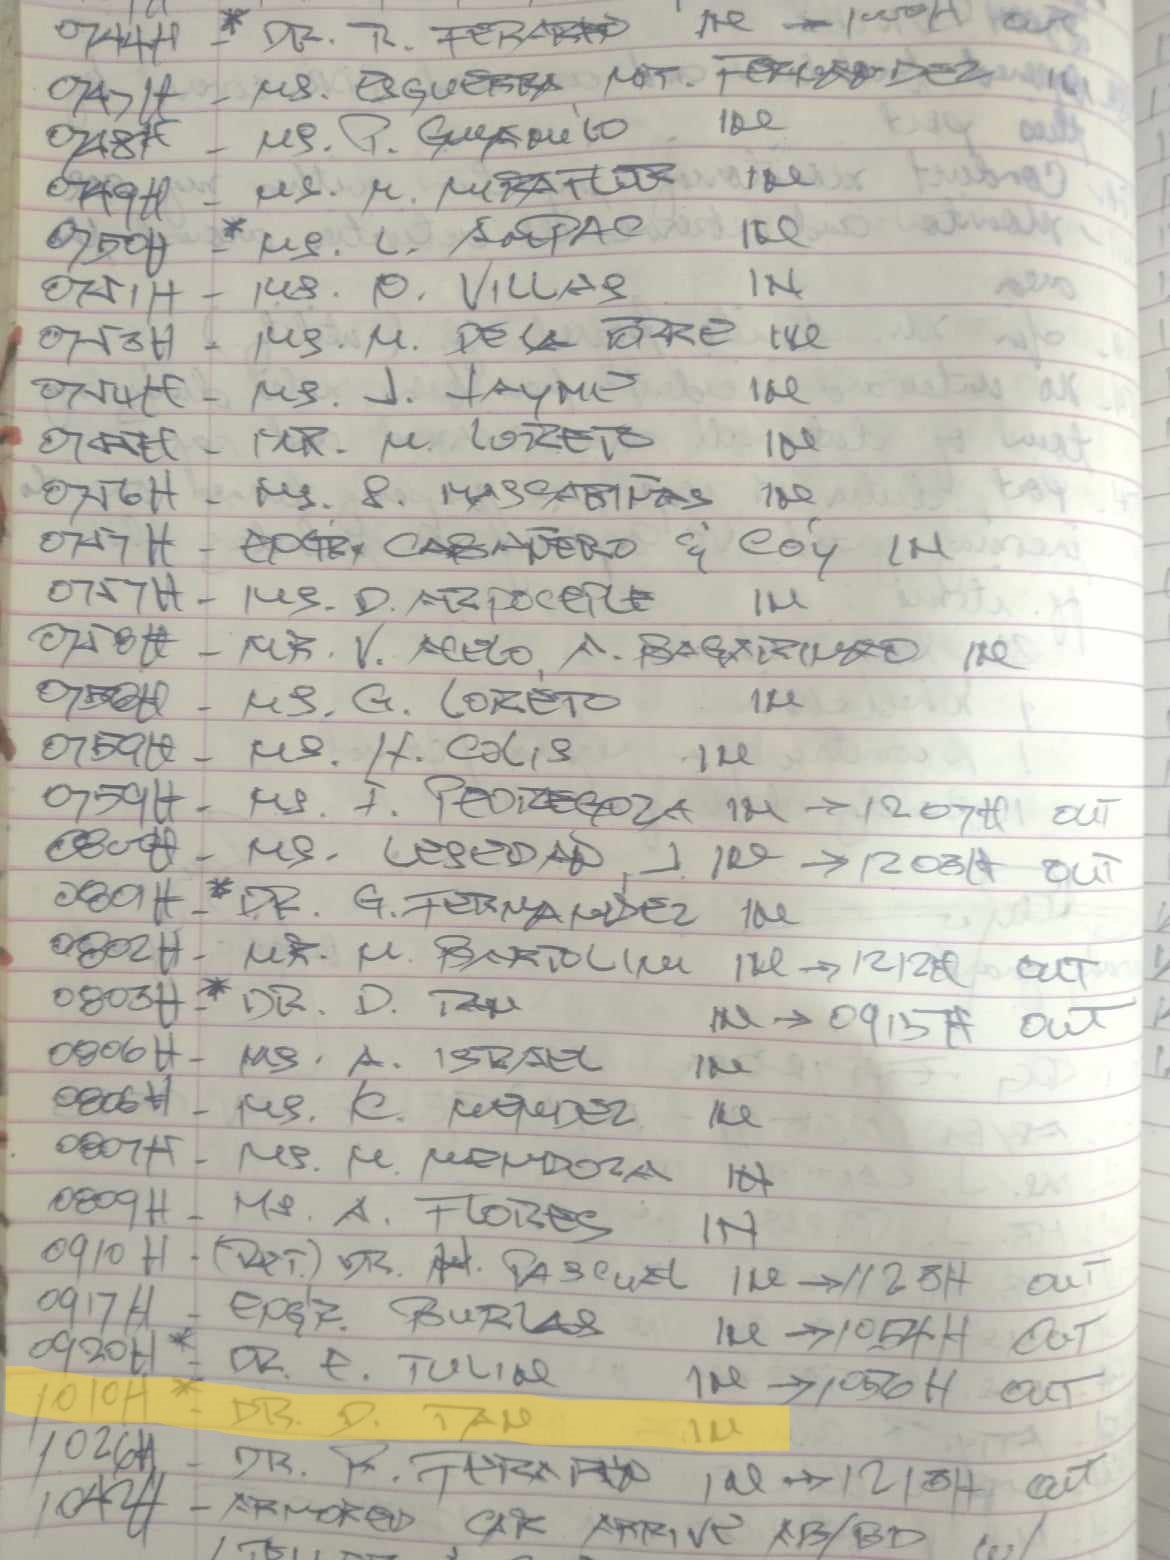 0744H - * DR. R. FERARED IN → 1000H OUT
0747H - MS. ESGUERRA, MDT. FERNANDEZ IN
0748H - MS. P. IN
0749H - MS. M. MIRAFLOR IN
0750H - * MS. L. AMPAC IN
0751H - MS. O. VILLAS IN
0753H - MS. M. DELA TORRE IN
0754H - MS. J. JAYME IN
0755H - MR. M. LORETO IN
0756H - MS. S. MASCARIÑAS IN
0757H - ENGR. CABAÑERO & COY IN
0757H - MS. D. IN
0758H - MR. V. ACELO, A. BAGARINAO IN
0758H - MS. G. LORETO IN
0759H - MS. H. COLIS IN
0759H - MS. F. PEDREGOZA IN → 1207H OUT
0800H - MS. LESEDAN, J. IN → 1203H OUT
0801H - * DR. G. FERNANDEZ IN
0802H - MR. M. BARTOLINI IN → 1212H OUT
0803H - * DR. D. TAN IN → 0915H OUT
0806H - MS. A. ISRAEL IN
0806H - MS. K. MENDEZ IN
0807H - MS. M. MENDOZA IN
0809H - MS. A. FLORES IN
0910H - (RET.) DR. H. PASCUEL IN → 1123H OUT
0917H - ENGR. BURLAS IN → 1054H OUT
0920H * - DR. E. TULIN IN → 1056H OUT
1010H * - DR. D. TAN IN
1026H - DR. R. IN → 1213H OUT
1042H - ARMORED CAR ARRIVE AB/BD w/